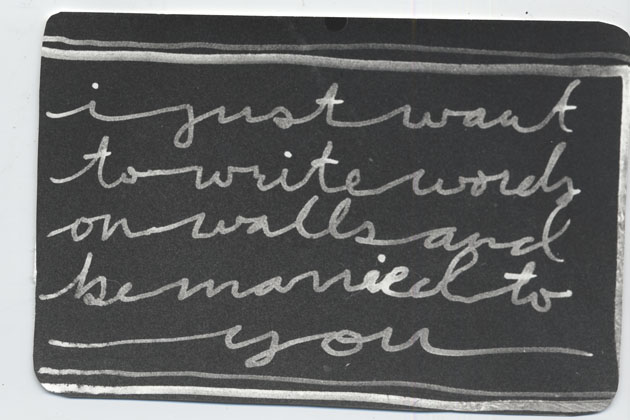 i just want
to write words
on walls and
be married to
you